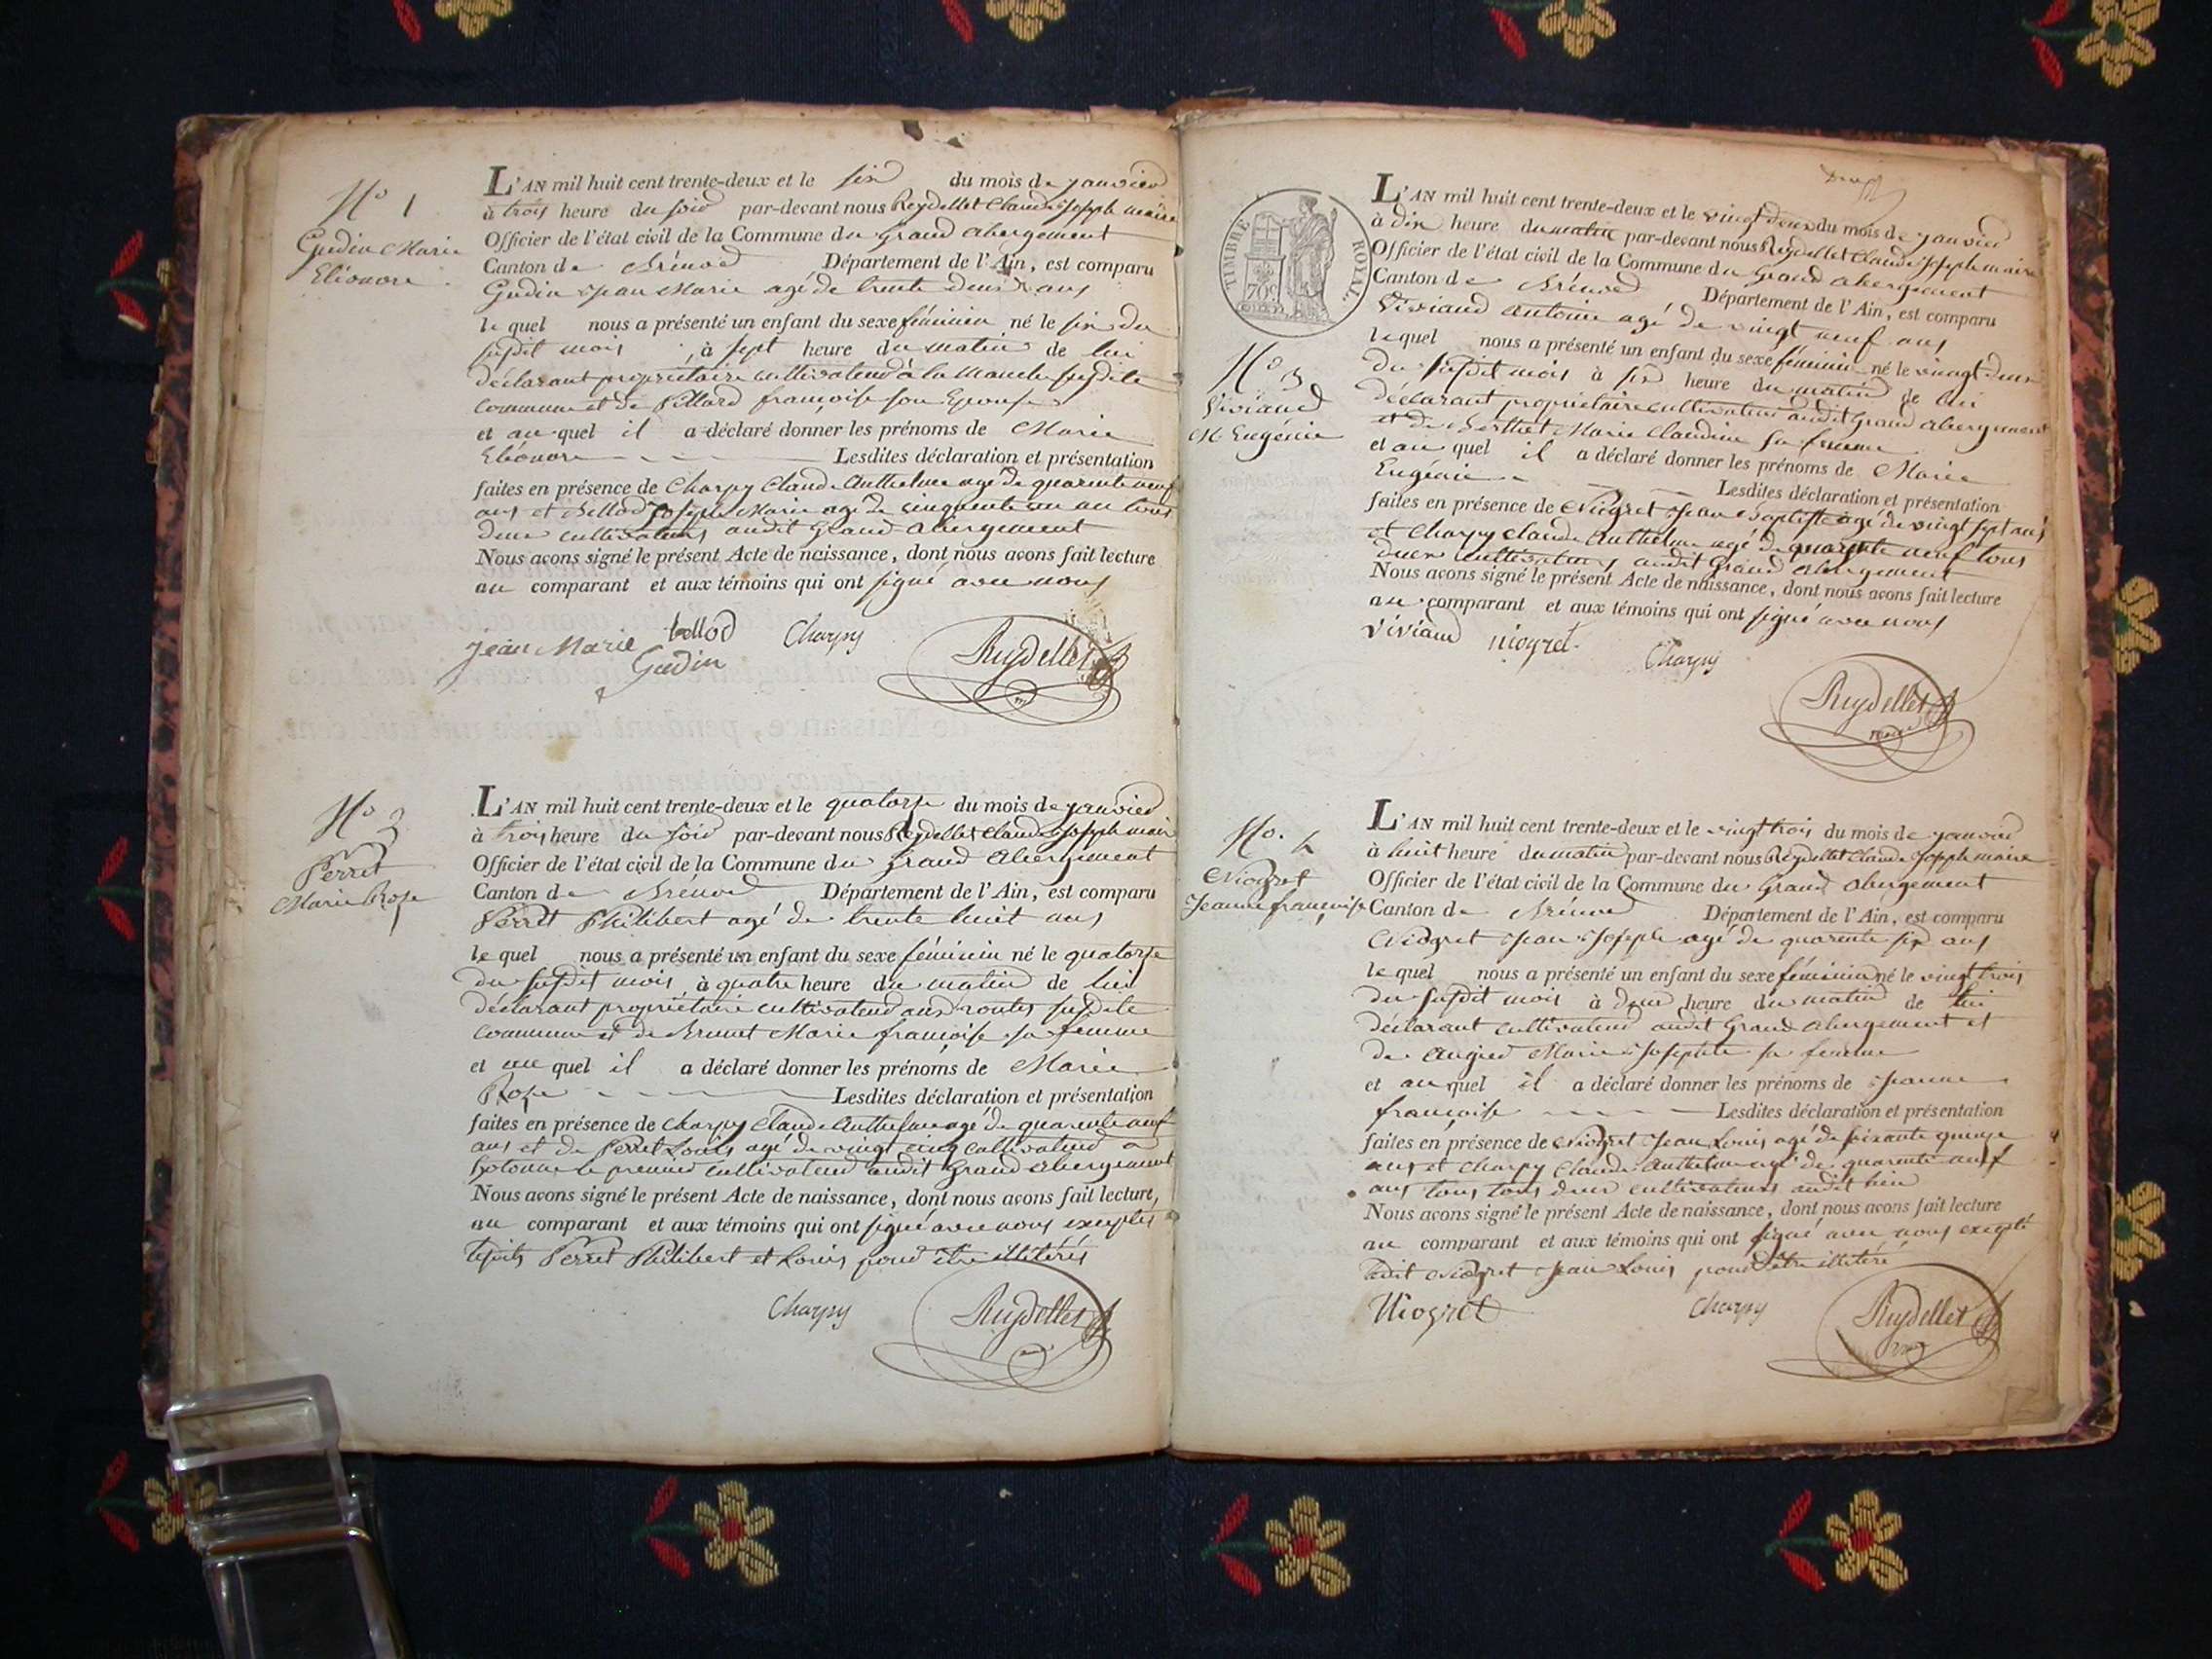 No 1
Gudin Marie
Eléonore
L'AN mil huit cent trente-deux et le six du mois de janvier
à trois heure du soir par-devant nous Reydellet Claude Joseph maire
Officier de l'état civil de la Commune du Grand abergement
Canton de Brénod Département de l'Ain, est comparu
Gudin Jean Marie agé de trente deux ans
le quel nous a présenté un enfant du sexe féminin né le six du
susdit mois, à sept heure du matin de lui
déclarant propriétaire cultivateur à la Manche susdite
commune et de Billard françoise son Epouse
et au quel il a déclaré donner les prénoms de Marie
Eléonore Lesdites déclaration et présentation
faites en présence de Charpy Claude Anthelme agé de quarente neuf
ans et Bellod Joseph Marie agé de cinquente un an tous
deux cultivateurs audit Grand abergement
Nous avons signé le présent Acte de naissance, dont nous avons fait lecture
au comparant et aux témoins qui ont signé avec nous
Jean Marie bellod Charpy Reydellet
Gudin
No 2
Perret
Marie Rose
L'AN mil huit cent trente-deux et le quatorse du mois de janvier
à trois heure du soir par-devant nous Reydellet Claude Joseph maire
Officier de l'état civil de la Commune du Grand Abergement
Canton de Brénod Département de l'Ain, est comparu
Perret Philibert agé de trente huit ans
le quel nous a présenté un enfant du sexe féminin né le quatorse
du susdit mois, à quatre heure du matin de lui
déclarant propriétaire cultivateur aux routes susdite
commune et de Brunet Marie françoise sa femme
et au quel il a déclaré donner les prénoms de Marie
Rose Lesdites déclaration et présentation
faites en présence de Charpy Claude Anthelme agé de quarente neuf
ans et de Perret Louis agé de vingt cinq cultivateur a
hotonne le premier cultivateur audit Grand abergement
Nous avons signé le présent Acte de naissance, dont nous avons fait lecture,
au comparant et aux témoins qui ont signé avec nous exceptés
lesdits Perret Philibert et Louis pour être illitérés
Charpy Reydellet
TIMBRE ROYAL.
70c
No 3
Viviand
M. Eugénie
L'AN mil huit cent trente-deux et le vingt deux du mois de janvier
à dix heure du matin par-devant nous Reydellet Claude Joseph maire
Officier de l'état civil de la Commune du Grand abergement
Canton de Brénod Département de l'Ain, est comparu
Viviand antoine agé de vingt neuf ans
le quel nous a présenté un enfant du sexe féminin né le vingt deux
du susdit mois à six heure du matin de lui
déclarant propriétaire cultivateur audit Grand abergement
et de Berthet Marie Claudine sa femme
et au quel il a déclaré donner les prénoms de Marie
Eugénie Lesdites déclaration et présentation
faites en présence de Niogret Jean Baptiste agé de vingt sept ans
et Charpy Claude Anthelme agé de quarante neuf tous
deux cultivateurs audit Grand abergement
Nous avons signé le présent Acte de naissance, dont nous avons fait lecture
au comparant et aux témoins qui ont signé avec nous
viviand niogret Charpy
Reydellet
No. 4
Niogret
Jeanne françoise
L'AN mil huit cent trente-deux et le vingt trois du mois de janvier
à huit heure du matin par-devant nous Reydellet Claude Joseph maire
Officier de l'état civil de la Commune du Grand abergement
Canton de Brénod Département de l'Ain, est comparu
Niogret Jean Joseph agé de quarente six ans
le quel nous a présenté un enfant du sexe féminin né le vingt trois
du susdit mois à deux heure du matin de lui
déclarant cultivateur audit Grand abergement et
de Augier Marie Josephte sa femme
et au quel il a déclaré donner les prénoms de Jeanne
françoise Lesdites déclaration et présentation
faites en présence de Niogret Jean Louis agé de soixante quinze
ans et Charpy Claude Anthelme agé de quarente neuf
ans tous tous deux cultivateurs audit lieu
Nous avons signé le présent Acte de naissance, dont nous avons fait lecture
au comparant et aux témoins qui ont signé avec nous excepté
ledit Niogret Jean Louis pour être illitéré
Niogret Charpy Reydellet